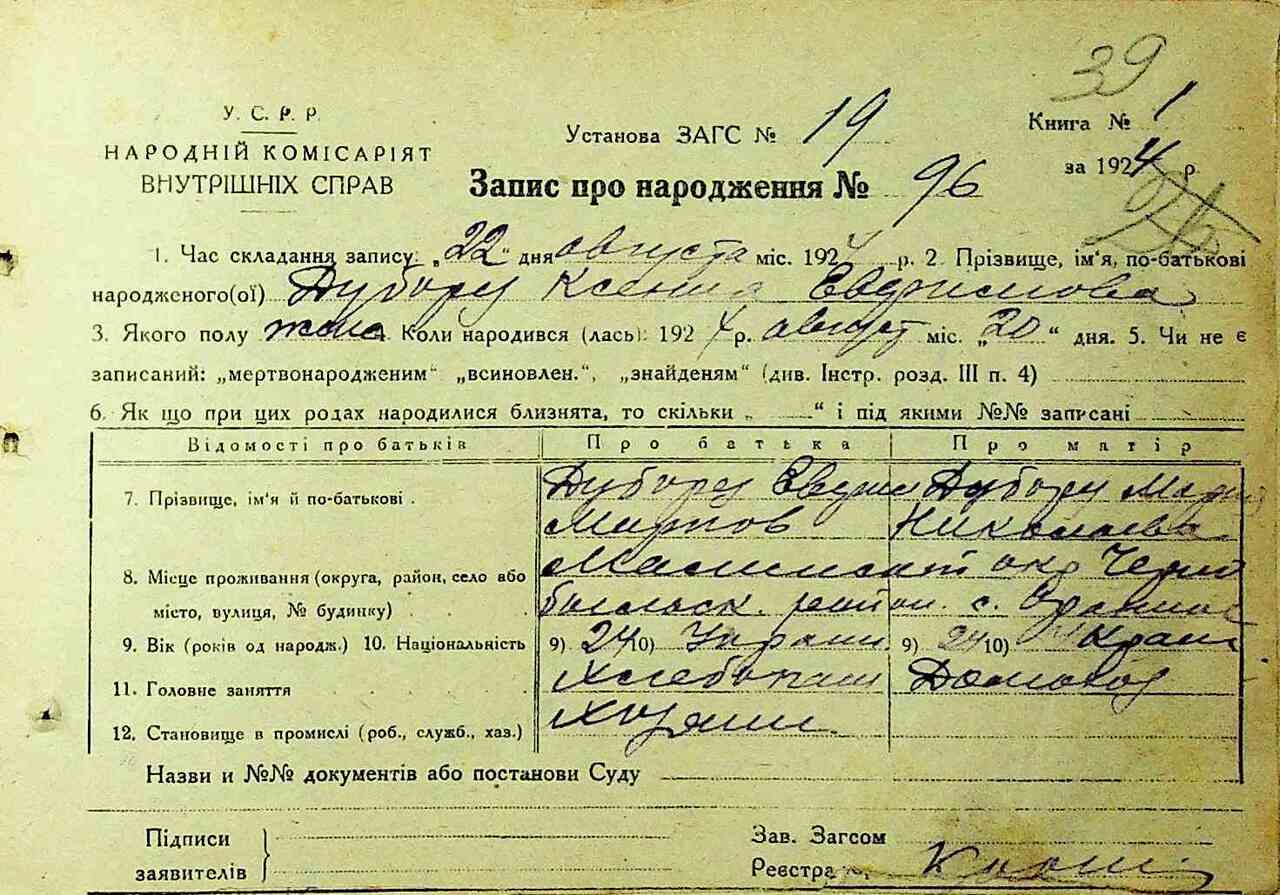 39
У. С. Р. Р.
НАРОДНІЙ КОМІСАРІЯТ
ВНУТРІШНІХ СПРАВ
Установа ЗАГС № 19
Книга № 1
за 1924 р.
Запис про народження № 96
1. Час складання запису: „22“ дня августа міс. 1924 р. 2. Прізвище, ім'я, по-батькові
народженого(ої) Ксения Евфимова
3. Якого полу жен 4. Коли народився (лась): 1924 р. август міс. „20“ дня. 5. Чи не є
записаний: „мертвонародженим“ „всиновлен.“, „знайденям“ (див. Інстр. розд. III п. 4)
6. Як що при цих родах народилися близнята, то скільки „ “ і під якими №№ записані
Відомості про батьків Про батька Про матір
7. Прізвище, ім'я й по-батькові.
Николаева
8. Місце проживання (округа, район, село або
місто, вулиця, № будинку)
район. с.
9. Вік (років од народж.) 10. Національність 9) 24 10) Украин 9) 24 10) Украин
11. Головне заняття Хлебопаш Домохоз
12. Становище в промислі (роб., служб., хаз.) Хозяин
Назви и №№ документів або постанови Суду
Підписи
заявителів
Зав. Загсом
Реєстра